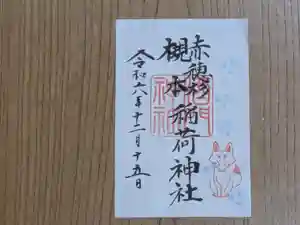 赤穂杉
槻本稲荷神社
令和六年十二月十五日